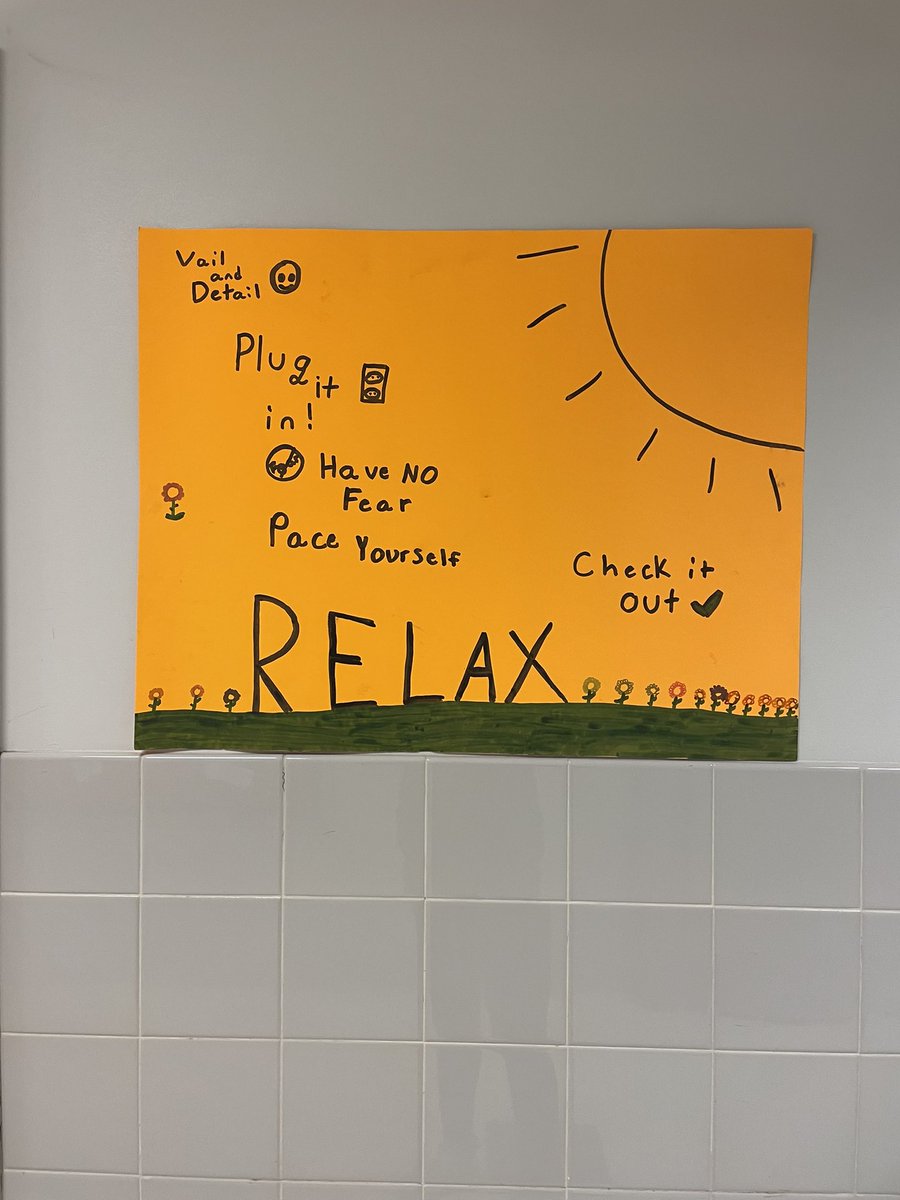 Vail
and
Detail
Plug
it
in!
Have NO
Fear
Pace Yourself
Check it
out
RELAX